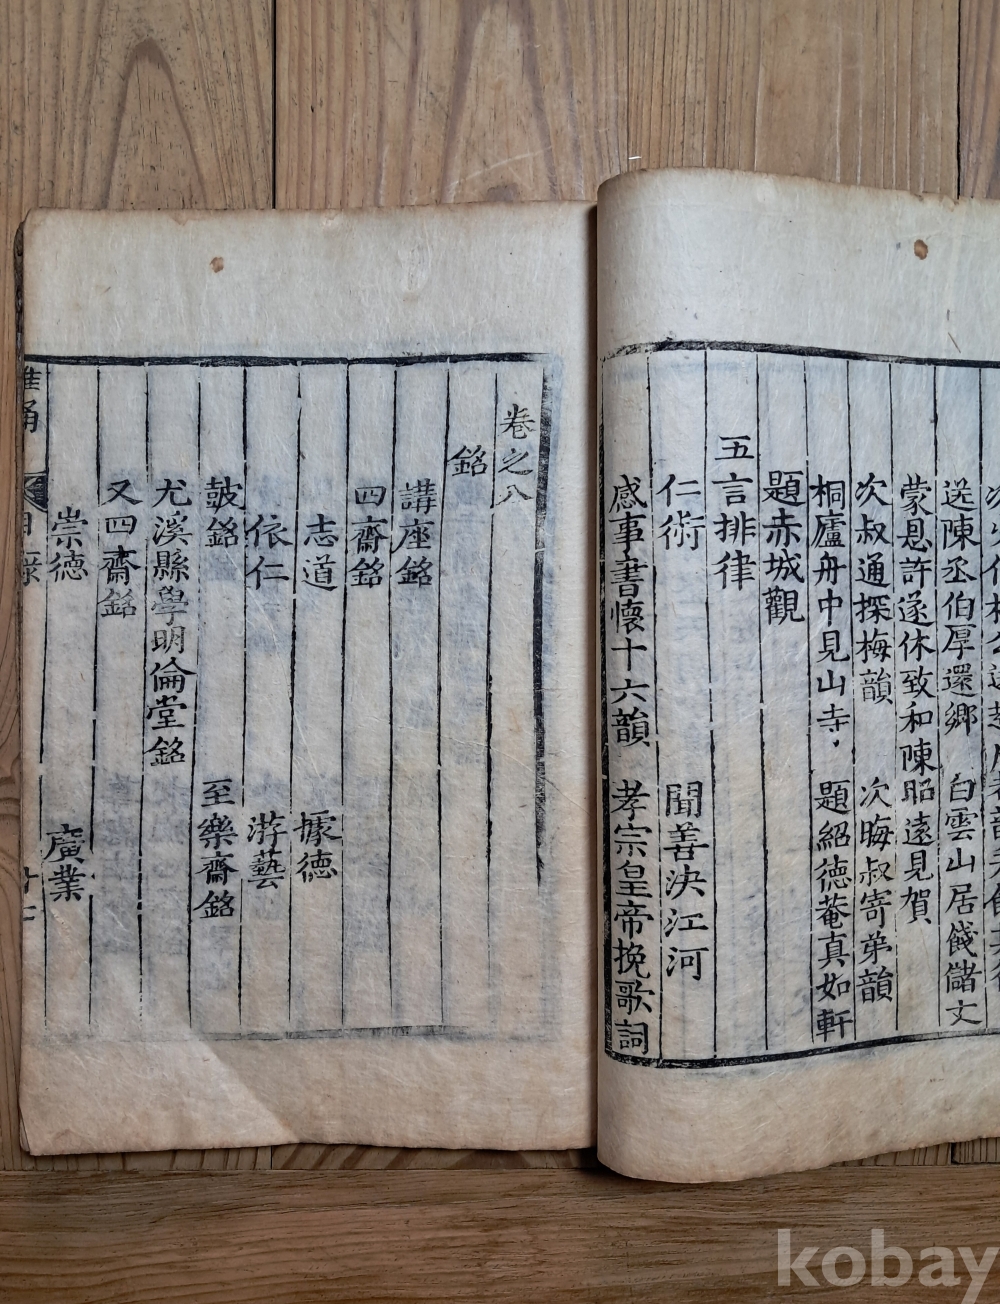 送陳丞伯厚還鄉 白雲山居餞儲文
蒙恩許遂休致和陳昭遠見賀
次叔通探梅韻 次晦叔寄弟韻
桐廬舟中見山寺 題紹德菴真如軒
題赤城觀
五言排律
仁術 聞善決江河
感事書懷十六韻 孝宗皇帝挽歌詞
卷之八
銘
講座銘
四齋銘
志道 據德
依仁 游藝
鼓銘 至樂齋銘
尤溪縣學明倫堂銘
又四齋銘
崇德 廣業
目錄
kobay